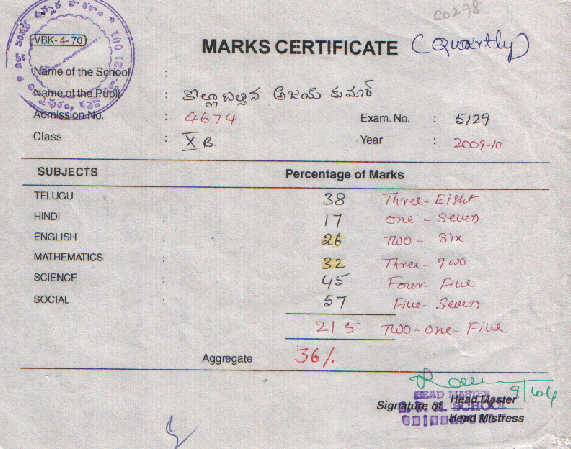 C0298
VBK-4-70
MARKS CERTIFICATE (Quartly)
Name of the School :
Name of the Pupil :
Admission No. : 4674 Exam. No. : 5129
Class : X B Year : 2009-10
SUBJECTS Percentage of Marks
TELUGU 38 Three-Eight
HINDI 17 one-Seven
ENGLISH 26 Two-Six
MATHEMATICS 32 Three-Two
SCIENCE 45 Four Five
SOCIAL 57 Five-Seven
215 Two-One-Five
Aggregate 36%
HEAD MASTER
Signature of Head Master
SCHOOL
Head Mistress